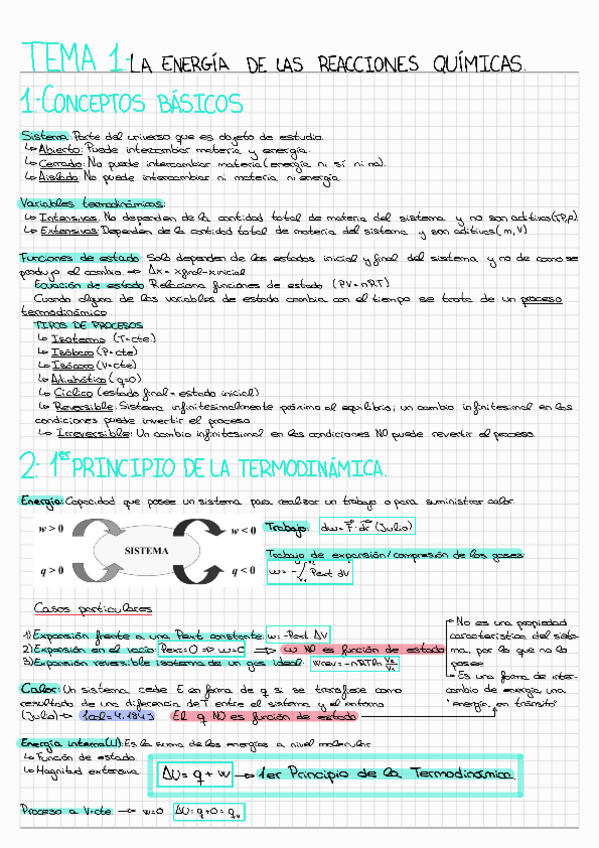 TEMA 1: LA ENERGÍA DE LAS REACCIONES QUÍMICAS.
1: CONCEPTOS BÁSICOS
Sistema: Parte del universo que es objeto de estudio.
↳ Abierto: Puede intercambiar materia y energía.
↳ Cerrado: No puede intercambiar materia (energía ni sí ni no).
↳ Aislado: No puede intercambiar ni materia ni energía.
Variables termodinámicas:
↳ Intensivas: No dependen de la cantidad total de materia del sistema y no son aditivas (T,P,ρ).
↳ Extensivas: Dependen de la cantidad total de materia del sistema y son aditivas (m,V)
Funciones de estado: Solo dependen de los estados inicial y final del sistema y no de como se
produjo el cambio. ⇒ Δx = xfinal-xinicial
Ecuación de estado: Relaciona funciones de estado (PV=nRT)
Cuando alguna de las variables de estado cambia con el tiempo se trata de un proceso
termodinámico
TIPOS DE PROCESOS
↳ Isotermo (T=cte)
↳ Isóbaro (P=cte)
↳ Isócoro (V=cte)
↳ Adiabático (q=0)
↳ Cíclico (estado final = estado inicial)
↳ Reversible: Sistema infinitesimalmente próximo al equilibrio; un cambio infinitesimal en las
condiciones puede invertir el proceso
↳ Irreversible: Un cambio infinitesimal en las condiciones NO puede revertir el proceso.
2: 1er PRINCIPIO DE LA TERMODINÁMICA.
Energía: Capacidad que posee un sistema para realizar un trabajo o para suministrar calor.
w > 0
w < 0
SISTEMA
q > 0
q < 0
Trabajo: dw = F · dr (Julio)
Trabajo de expansión/compresión de los gases
w = -∫ Pext dV
Casos particulares
1) Expansión frente a una Pext constante: w = -Pext ΔV
2) Expansión en el vacío: Pext=0 ⇒ w=0 ⇒ w NO es función de estado
3) Expansión reversible isoterma de un gas ideal: Wrev = -nRTln V2/V1
No es una propiedad
característica del siste-
ma, por lo que no la
posee
Es una forma de inter-
cambio de energía, una
"energía en tránsito"
Calor: Un sistema cede E en forma de q si se transfiere como
resultado de una diferencia de T entre el sistema y el entorno
(Julio) → 1cal = 4.184J El q NO es función de estado
Energía interna (U): Es la suma de las energías a nivel molecular
↳ Función de estado
↳ Magnitud extensiva
ΔU = q + w → 1er Principio de la Termodinámica.
Proceso a V=cte → w=0 ΔU = q+0 = qv